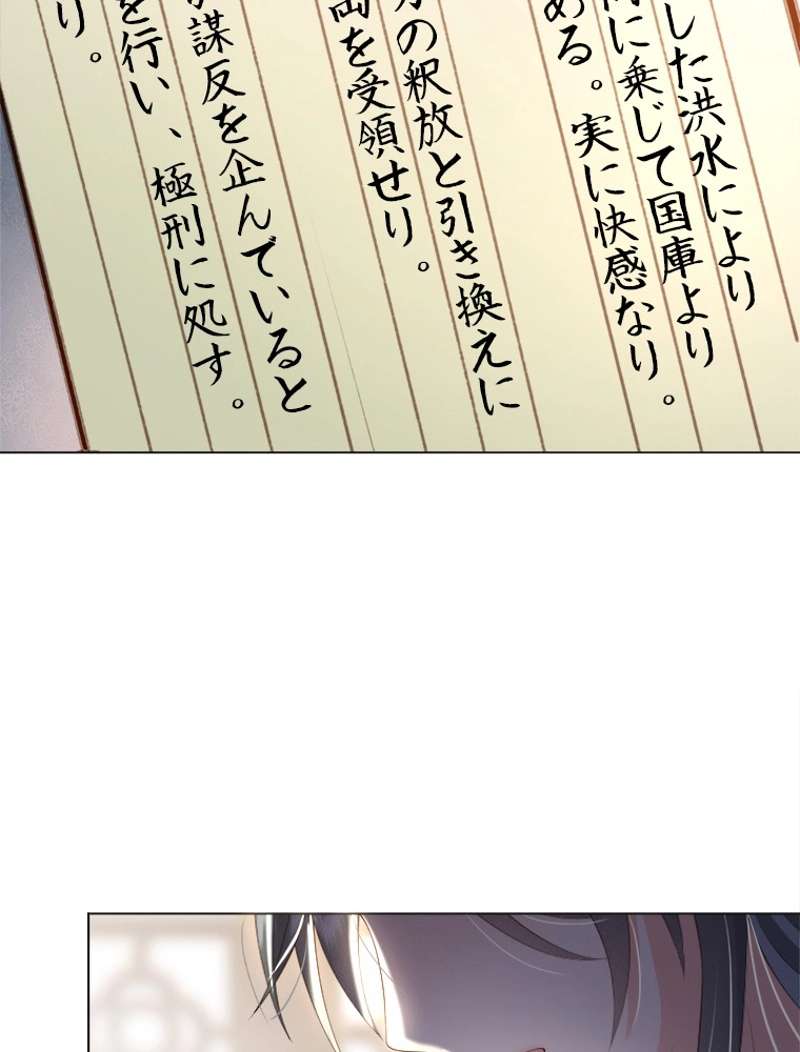 した洪水により
に乗じて国庫より
ある。実に快感なり。
の釈放と引き換えに
両を受領せり。
謀反を企んでいると
を行い、極刑に処す。
り。